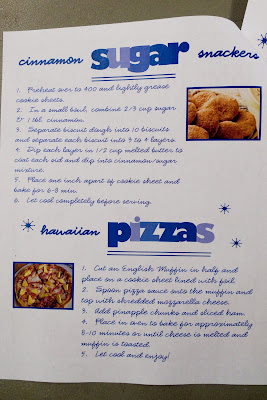 cinnamon sugar snackers
1. Preheat oven to 400 and lightly grease
cookie sheets.
2. In a small bowl, combine 2/3 cup sugar
& 1 tbl. cinnamon.
3. Separate biscuit dough into 10 biscuits
and separate each biscuit into 3 to 4 layers.
4. Dip each layer in 1/2 cup melted butter to
coat each sid and dip into cinnamon/sugar
mixture.
5. Place one inch apart of cookie sheet and
bake for 6-8 min.
6. Let cool completely before serving.
hawaiian pizzas
1. Cut an English Muffin in half and
place on a cookie sheet lined with foil.
2. Spoon pizza sauce onto the muffin and
top with shredded mozzarella cheese.
3. Add pinapple chunks and sliced ham.
4. Place in oven to bake for approximately
8-10 minutes or until cheese is melted and
muffin is toasted.
5. Let cool and enjoy!